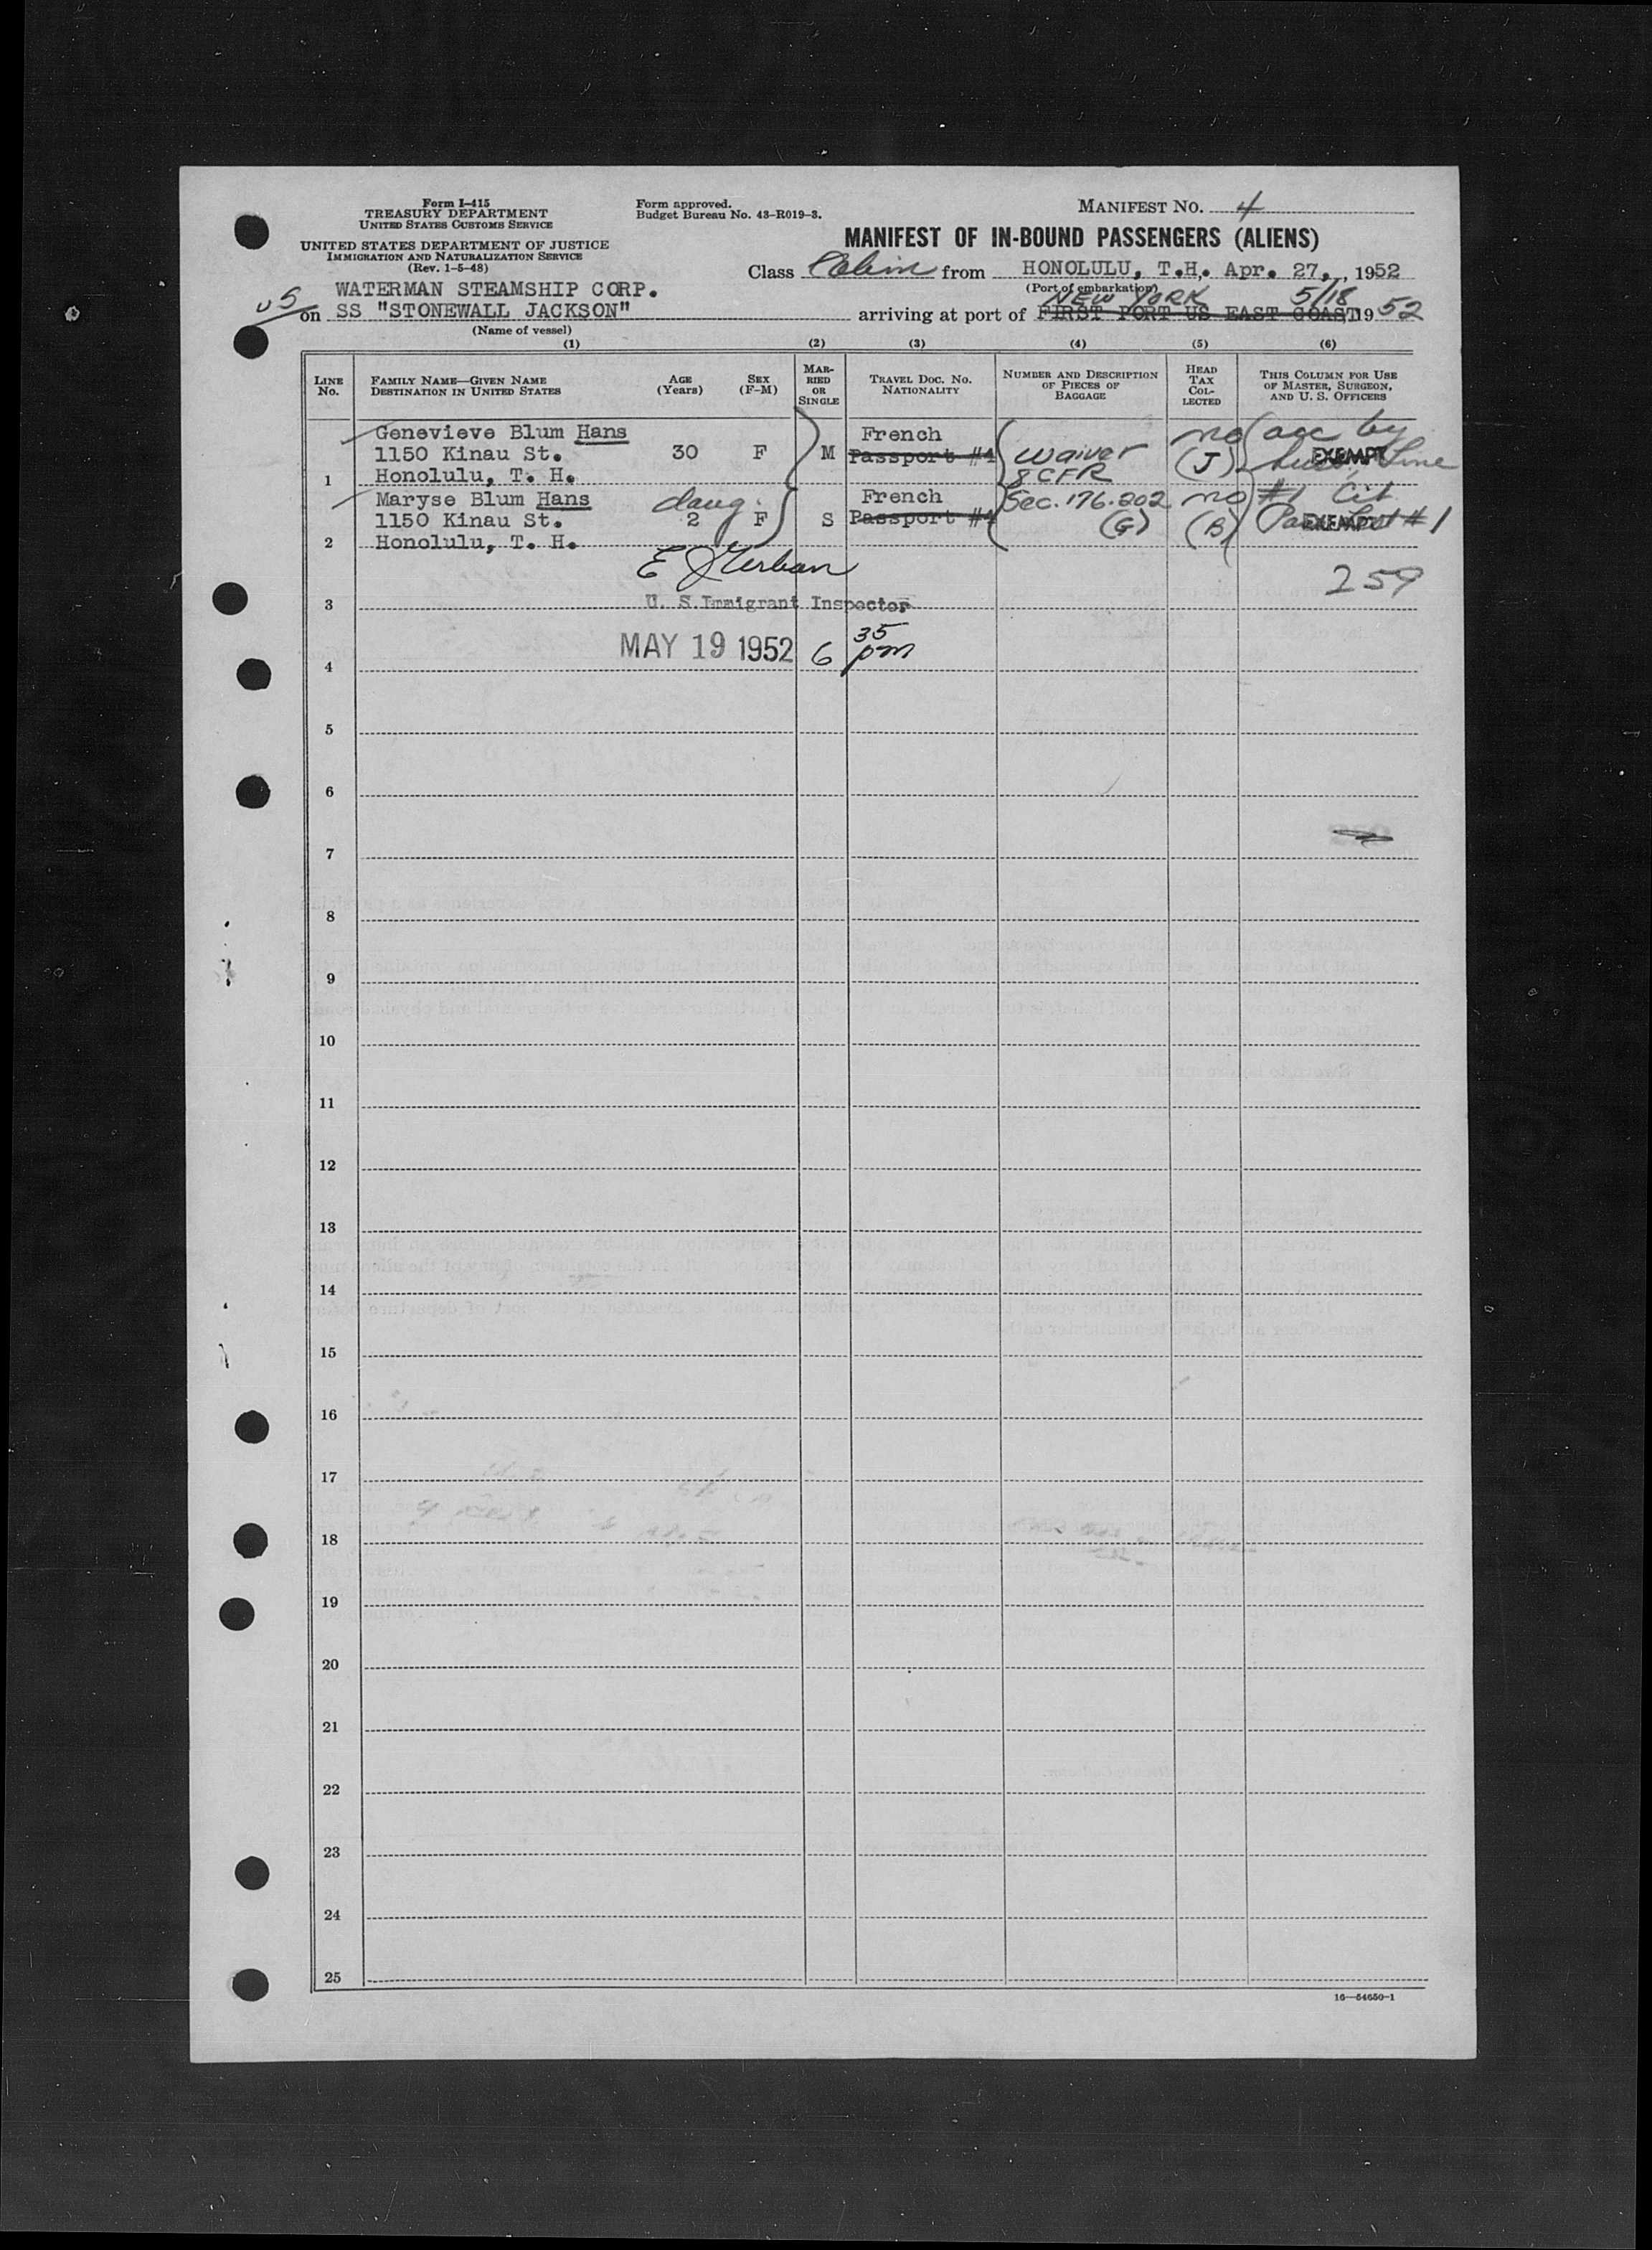 Form I-415
TREASURY DEPARTMENT
UNITED STATES CUSTOMS SERVICE
UNITED STATES DEPARTMENT OF JUSTICE
IMMIGRATION AND NATURALIZATION SERVICE
(Rev. 1-5-48)
Form approved.
Budget Bureau No. 43-R019-3.
MANIFEST NO. 4
MANIFEST OF IN-BOUND PASSENGERS (ALIENS)
Class Cabin from HONOLULU, T.H. Apr. 27, 1952
(Port of embarkation)
WATERMAN STEAMSHIP CORP.
US on SS "STONEWALL JACKSON"
(Name of vessel)
NEW YORK 5/18
arriving at port of FIRST PORT US EAST COAST 1952
(1) (2) (3) (4) (5) (6)
LINE No.
FAMILY NAME—GIVEN NAME
DESTINATION IN UNITED STATES
AGE (Years)
SEX (F-M)
MARRIED OR SINGLE
TRAVEL DOC. NO.
NATIONALITY
NUMBER AND DESCRIPTION OF PIECES OF BAGGAGE
HEAD TAX COLLECTED
THIS COLUMN FOR USE OF MASTER, SURGEON, AND U. S. OFFICERS
Genevieve Blum Hans French no acc by
1150 Kinau St. 30 F M Passport #1 waiver (J) EXEMPT Line
1 Honolulu, T. H. 8 CFR
Maryse Blum Hans daug. French Sec. 176.202 no #1 Cit
1150 Kinau St. 2 F S Passport #1 (G) (B) EXEMPT #1
2 Honolulu, T. H.
259
3 U. S. Immigrant Inspector
4 MAY 19 1952 6 35 pm
5
6
7
8
9
10
11
12
13
14
15
16
17
18
19
20
21
22
23
24
25
16—54650-1